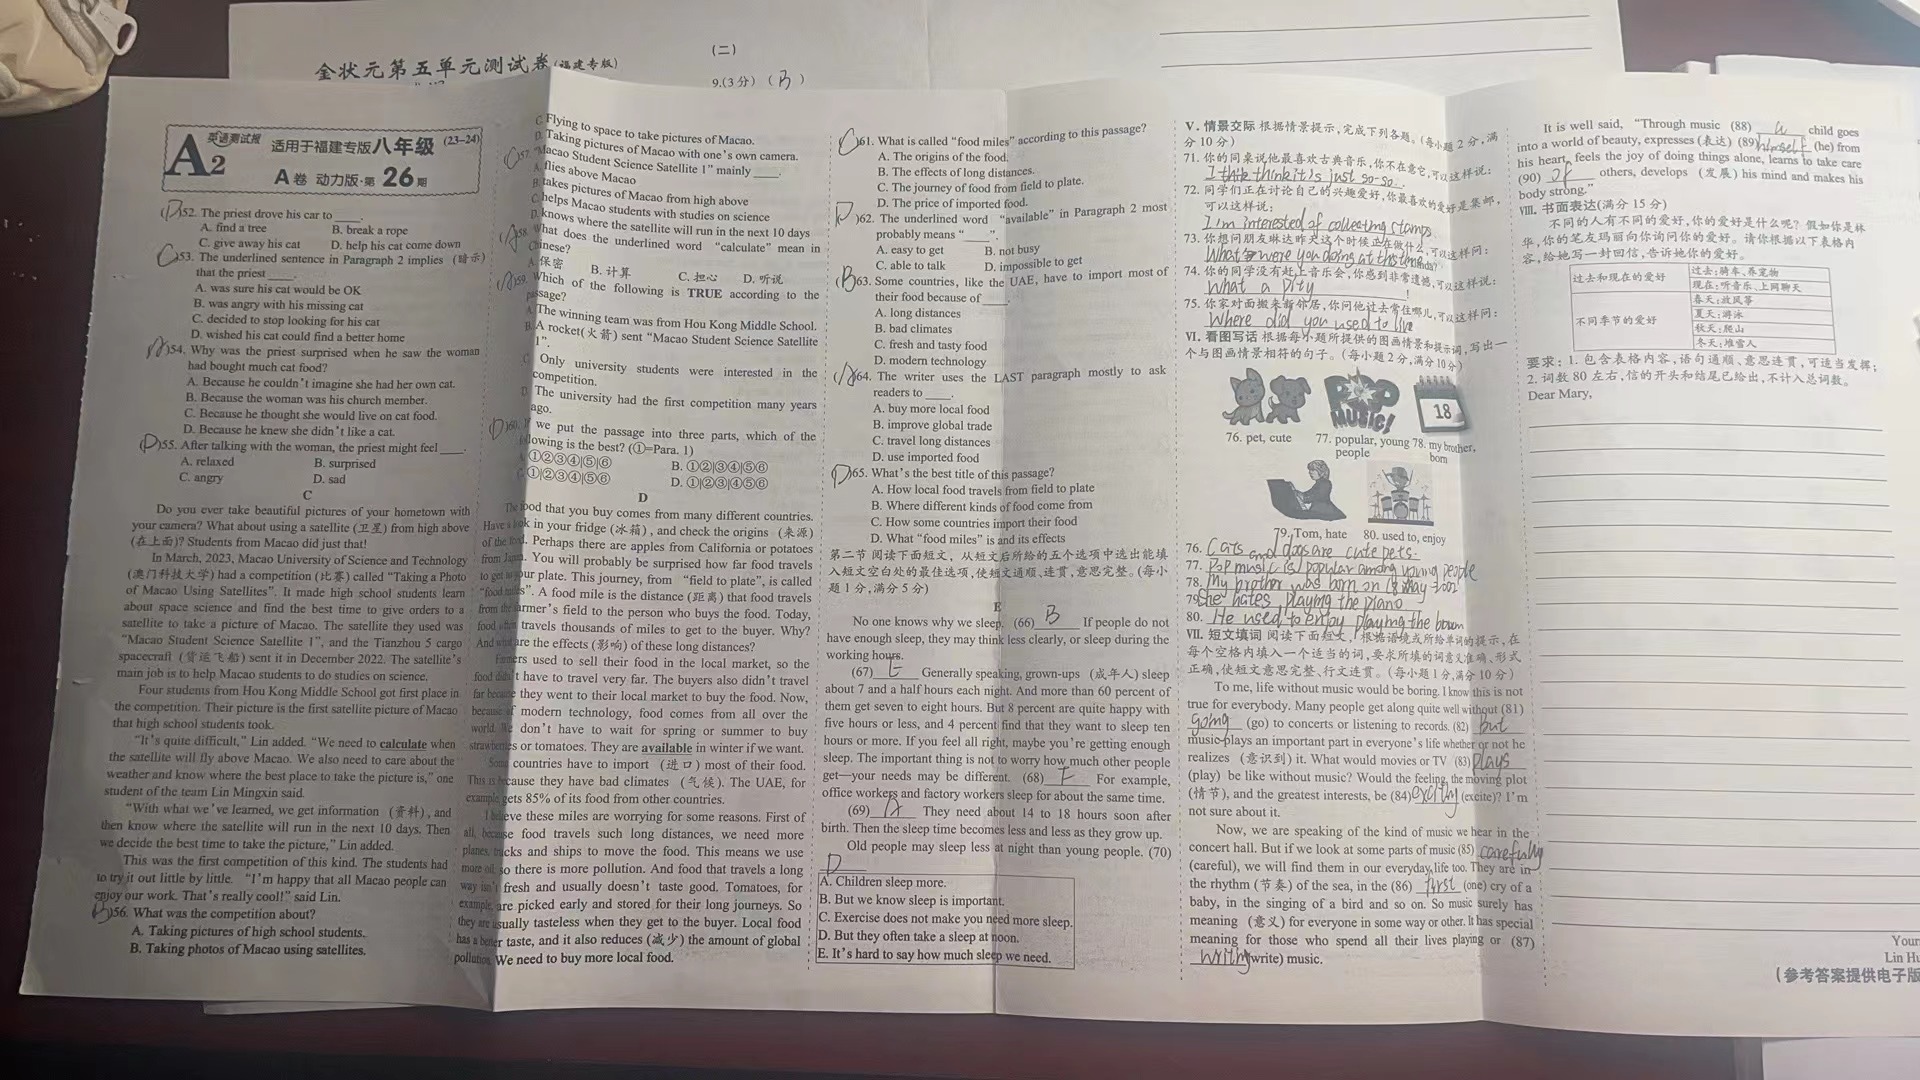 金状元第五单元测试卷(福建专版)
(二)
9.(3分) ( B )
英语测试报
A2
适用于福建专版八年级 (23–24)
A卷 动力版·第26期
(D)52. The priest drove his car to ____.
A. find a tree B. break a rope
C. give away his cat D. help his cat come down
(C)53. The underlined sentence in Paragraph 2 implies (暗示)
that the priest ____.
A. was sure his cat would be OK
B. was angry with his missing cat
C. decided to stop looking for his cat
D. wished his cat could find a better home
(A)54. Why was the priest surprised when he saw the woman
had bought much cat food?
A. Because he couldn't imagine she had her own cat.
B. Because the woman was his church member.
C. Because he thought she would live on cat food.
D. Because he knew she didn't like a cat.
(D)55. After talking with the woman, the priest might feel ____.
A. relaxed B. surprised
C. angry D. sad
C
Do you ever take beautiful pictures of your hometown with
your camera? What about using a satellite (卫星) from high above
(在上面)? Students from Macao did just that!
In March, 2023, Macao University of Science and Technology
(澳门科技大学) had a competition (比赛) called "Taking a Photo
of Macao Using Satellites". It made high school students learn
about space science and find the best time to give orders to a
satellite to take a picture of Macao. The satellite they used was
"Macao Student Science Satellite 1", and the Tianzhou 5 cargo
spacecraft (货运飞船) sent it in December 2022. The satellite's
main job is to help Macao students to do studies on science.
Four students from Hou Kong Middle School got first place in
the competition. Their picture is the first satellite picture of Macao
that high school students took.
"It's quite difficult," Lin added. "We need to calculate when
the satellite will fly above Macao. We also need to care about the
weather and know where the best place to take the picture is," one
student of the team Lin Mingxin said.
"With what we've learned, we get information (资料), and
then know where the satellite will run in the next 10 days. Then
we decide the best time to take the picture," Lin added.
This was the first competition of this kind. The students had
to try it out little by little. "I'm happy that all Macao people can
enjoy our work. That's really cool!" said Lin.
( )56. What was the competition about?
A. Taking pictures of high school students.
B. Taking photos of Macao using satellites.
C. Flying to space to take pictures of Macao.
D. Taking pictures of Macao with one's own camera.
(C)57. "Macao Student Science Satellite 1" mainly ____.
A. flies above Macao
B. takes pictures of Macao from high above
C. helps Macao students with studies on science
D. knows where the satellite will run in the next 10 days
(A)58. What does the underlined word "calculate" mean in
Chinese?
A. 保密 B. 计算 C. 担心 D. 听说
(A)59. Which of the following is TRUE according to the
passage?
A. The winning team was from Hou Kong Middle School.
B. A rocket(火箭) sent "Macao Student Science Satellite
1".
C. Only university students were interested in the
competition.
D. The university had the first competition many years
ago.
(D)60. If we put the passage into three parts, which of the
following is the best? (①=Para. 1)
A. ①②③④|⑤|⑥ B. ①②|③④|⑤⑥
C. ①|②③④|⑤⑥ D. ①|②③④⑤|⑥
D
The food that you buy comes from many different countries.
Have a look in your fridge (冰箱), and check the origins (来源)
of the food. Perhaps there are apples from California or potatoes
from Japan. You will probably be surprised how far food travels
to get to your plate. This journey, from "field to plate", is called
"food miles". A food mile is the distance (距离) that food travels
from the farmer's field to the person who buys the food. Today,
food often travels thousands of miles to get to the buyer. Why?
And what are the effects (影响) of these long distances?
Farmers used to sell their food in the local market, so the
food didn't have to travel very far. The buyers also didn't travel
far because they went to their local market to buy the food. Now,
because of modern technology, food comes from all over the
world. We don't have to wait for spring or summer to buy
strawberries or tomatoes. They are available in winter if we want.
Some countries have to import (进口) most of their food.
This is because they have bad climates (气候). The UAE, for
example, gets 85% of its food from other countries.
I believe these miles are worrying for some reasons. First of
all, because food travels such long distances, we need more
planes, trucks and ships to move the food. This means we use
more oil, so there is more pollution. And food that travels a long
way isn't fresh and usually doesn't taste good. Tomatoes, for
example, are picked early and stored for their long journeys. So
they are usually tasteless when they get to the buyer. Local food
has a better taste, and it also reduces (减少) the amount of global
pollution. We need to buy more local food.
(C)61. What is called "food miles" according to this passage?
A. The origins of the food.
B. The effects of long distances.
C. The journey of food from field to plate.
D. The price of imported food.
(D)62. The underlined word "available" in Paragraph 2 most
probably means "____".
A. easy to get B. not busy
C. able to talk D. impossible to get
(B)63. Some countries, like the UAE, have to import most of
their food because of ____.
A. long distances
B. bad climates
C. fresh and tasty food
D. modern technology
(A)64. The writer uses the LAST paragraph mostly to ask
readers to ____.
A. buy more local food
B. improve global trade
C. travel long distances
D. use imported food
(D)65. What's the best title of this passage?
A. How local food travels from field to plate
B. Where different kinds of food come from
C. How some countries import their food
D. What "food miles" is and its effects
第二节 阅读下面短文, 从短文后所给的五个选项中选出能填
入短文空白处的最佳选项, 使短文通顺、连贯, 意思完整。(每小
题1分, 满分5分)
E
No one knows why we sleep. (66) B If people do not
have enough sleep, they may think less clearly, or sleep during the
working hours.
(67) E Generally speaking, grown-ups (成年人) sleep
about 7 and a half hours each night. And more than 60 percent of
them get seven to eight hours. But 8 percent are quite happy with
five hours or less, and 4 percent find that they want to sleep ten
hours or more. If you feel all right, maybe you're getting enough
sleep. The important thing is not to worry how much other people
get—your needs may be different. (68) For example,
office workers and factory workers sleep for about the same time.
(69) A They need about 14 to 18 hours soon after
birth. Then the sleep time becomes less and less as they grow up.
Old people may sleep less at night than young people. (70)
D
A. Children sleep more.
B. But we know sleep is important.
C. Exercise does not make you need more sleep.
D. But they often take a sleep at noon.
E. It's hard to say how much sleep we need.
V. 情景交际 根据情景提示, 完成下列各题。(每小题2分, 满
分10分)
71. 你的同桌说他最喜欢古典音乐, 你不在意它, 可以这样说:
I think it's just so-so.
72. 同学们正在讨论自己的兴趣爱好, 你最喜欢的爱好是集邮,
可以这样说:
I'm interested of collecting stamps
73. 你想问朋友琳达昨天这个时候正在做什么, 可以这样问:
What were you doing at this time
74. 你的同学没有赶上音乐会, 你感到非常遗憾, 可以这样说:
What a pity !
75. 你家对面搬来新邻居, 你问他过去常住哪儿, 可以这样问:
Where did you used to live
VI. 看图写话 根据每小题所提供的图画情景和提示词, 写出一
个与图画情景相符的句子。(每小题2分, 满分10分)
POP MUSIC!
18
76. pet, cute 77. popular, young people 78. my brother, born
79. Tom, hate 80. used to, enjoy
76. Cats and dogs are cute pets.
77. Pop music is popular among young people
78. My brother was born on 18 May
79. She hates playing the piano
80. He used to enjoy playing the
VII. 短文填词 阅读下面短文, 根据语境或所给单词的提示, 在
每个空格内填入一个适当的词, 要求所填的词意义准确、形式
正确, 使短文意思完整、行文连贯。(每小题1分, 满分10分)
To me, life without music would be boring. I know this is not
true for everybody. Many people get along quite well without (81)
going (go) to concerts or listening to records. (82) But
music plays an important part in everyone's life whether or not he
realizes (意识到) it. What would movies or TV (83) plays
(play) be like without music? Would the feeling, the moving plot
(情节), and the greatest interests, be (84) exciting (excite)? I'm
not sure about it.
Now, we are speaking of the kind of music we hear in the
concert hall. But if we look at some parts of music (85) carefully
(careful), we will find them in our everyday life too. They are in
the rhythm (节奏) of the sea, in the (86) first (one) cry of a
baby, in the singing of a bird and so on. So music surely has
meaning (意义) for everyone in some way or other. It has special
meaning for those who spend all their lives playing or (87)
writing (write) music.
It is well said, "Through music (88) a child goes
into a world of beauty, expresses (表达) (89) himself (he) from
his heart, feels the joy of doing things alone, learns to take care
(90) of others, develops (发展) his mind and makes his
body strong."
VIII. 书面表达(满分15分)
不同的人有不同的爱好, 你的爱好是什么呢? 假如你是林
华, 你的笔友玛丽向你询问你的爱好。请你根据以下表格内
容, 给她写一封回信, 告诉她你的爱好。
过去和现在的爱好 过去: 骑车、养宠物
现在: 听音乐、上网聊天
不同季节的爱好 春天: 放风筝
夏天: 游泳
秋天: 爬山
冬天: 堆雪人
要求: 1. 包含表格内容, 语句通顺、意思连贯, 可适当发挥;
2. 词数80左右, 信的开头和结尾已给出, 不计入总词数。
Dear Mary,
Your
Lin Hu
(参考答案提供电子版